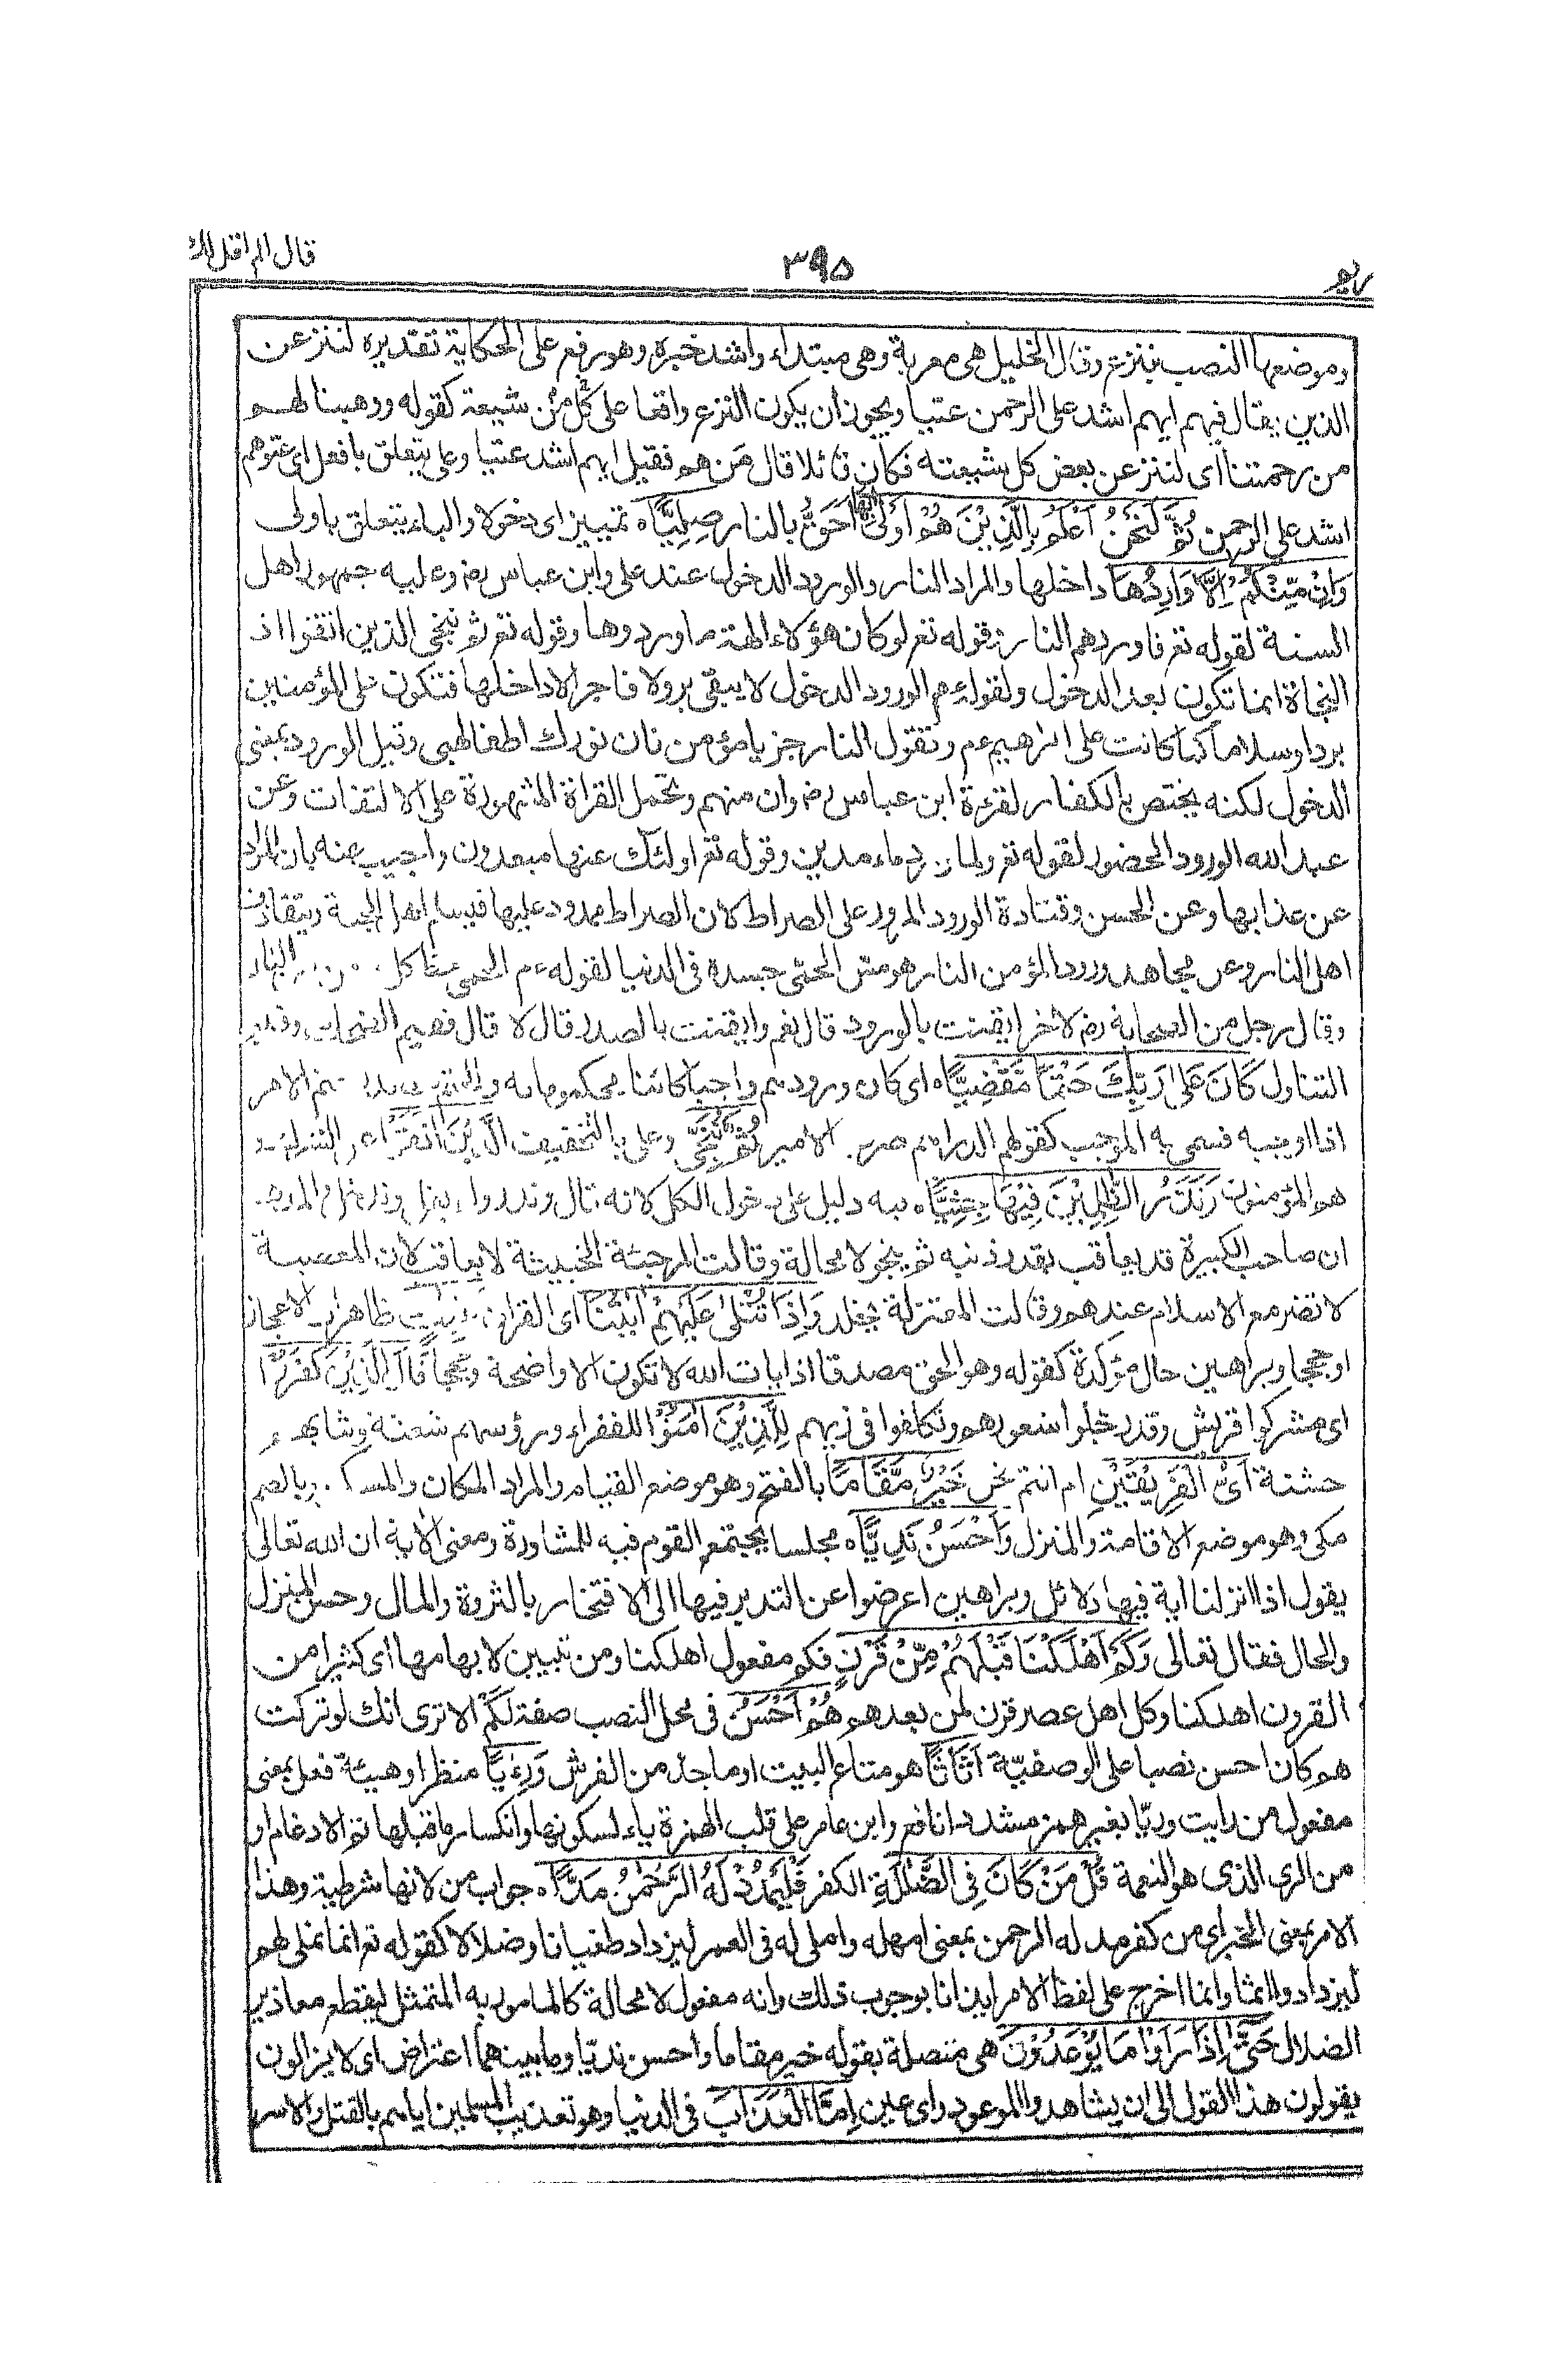 قال الم اقل لك
٣٩٥
مريم
وموضعها النصب بننزع وقال الخليل هى معربة وهى مبتداء واشد خبره وهو رفع على الحكاية تقديره لننزعن
الذين يقال فيهم ايهم اشد على الرحمن عتيا ويجوز ان يكون النزع واقعا على كل من شيعة كقوله ووهبنا لهم
من رحمتنا اى لننزعن بعض كل شيعته فكان قائلا قال من هم فقيل ايهم اشد عتيا وعلى يتعلق بافعل اى عتوهم
اشد على الرحمن ثُمَّ لَنَحْنُ اَعْلَمُ بِالَّذِيْنَ هُمْ اَوْلٰى بِهَا احق بالنار صِلِيًّا ه تمييز اى دخولا والباء يتعلق باولى
وَاِنْ مِّنْكُمْ اِلَّا وَارِدُهَا داخلها والمراد النار والورود الدخول عند على وابن عباس رضـ وعليه جمهور اهل
السنة لقوله تعـ فاوردهم النار وقوله تعـ لو كان هؤلاء الهة ما وردوها وقوله تعـ ثم ننجى الذين اتقوا اذ
النجاة انما تكون بعد الدخول ولقوله عم الورود الدخول لا يبقى بر ولا فاجر الا داخلها فتكون على المؤمنين
بردا وسلاما كما كانت على ابرهيم عم وتقول النار جز يا مؤمن فان نورك اطفأ لهبى وقيل الورود بمعنى
الدخول لكنه يختص بالكفار لقرءة ابن عباس رضـ وان منهم وتحمل القراة المشهورة على الالتفات وعن
عبد الله الورود الحضور لقوله تعـ ولما ورد ماء مدين وقوله تعـ اولئك عنها مبعدون واجيب عنه بان المراد
عن عذابها وعن الحسن وقتادة الورود المرور على الصراط لان الصراط ممدود عليها فيسلم اهل الجنة ويتقاذف
اهل النار وعن مجاهد ورود المؤمن النار هو مس الحمى جسده فى الدنيا لقوله عم الحمى حظ كل مؤمن من النار
وقال رجل من الصحابة رضـ لاخر ايقنت بالورود قال نعم وايقنت بالصدر قال لا قال ففيم الضحك وفيم
التثاقل كَانَ عَلٰى رَبِّكَ حَتْمًا مَّقْضِيًّا ه اى كان ورودهم واجبا كائنا محكوما به والحتم مصدر حتم الامر
اذا اوجبه فسمى به الموجب كقولهم الدراهم ضرب الامير ثُمَّ نُنَجِّى وعلى بالتخفيف الَّذِيْنَ اتَّقَوْا عن الشرك و
هم المؤمنون وَنَذَرُ الظّٰلِمِيْنَ فِيْهَا جِثِيًّا ه فيه دليل على دخول الكل لانه قال ونذر ولم يقل وندخل والمذهب
ان صاحب الكبيرة قد يعاقب بقدر ذنبه ثم ينجو لا محالة وقالت المرجئة الخبيثة لا يعاقب لان المعصية
لا تضر مع الاسلام عندهم وقالت المعتزلة يخلد وَاِذَا تُتْلٰى عَلَيْهِمْ اٰيٰتُنَا اى القران بَيِّنٰتٍ ظاهرات الاعجاز
او حججا وبراهين حال مؤكدة كقوله وهو الحق مصدقا اذ ايات الله لا تكون الا واضحة وحججا قَالَ الَّذِيْنَ كَفَرُوْا
اى مشركوا قريش وقد رجلوا شعورهم وتكلفوا فى زيهم لِلَّذِيْنَ اٰمَنُوْا للفقراء ورؤسهم شعثة وثيابهم
خشنة اَىُّ الْفَرِيْقَيْنِ ام انتم نحن خَيْرٌ مَّقَامًا بالفتح وهو موضع القيام والمراد المكان والمسكن وبالضم
مكى وهو موضع الاقامة والمنزل وَاَحْسَنُ نَدِيًّا ه مجلسا يجتمع القوم فيه للمشاورة ومعنى الاية ان الله تعالى
يقول اذا انزلنا اية فيها دلائل وبراهين اعرضوا عن التدبر فيها الى الافتخار بالثروة والمال وحسن المنزل
والحال فقال تعالى وَكَمْ اَهْلَكْنَا قَبْلَهُمْ مِّنْ قَرْنٍ فكم مفعول اهلكنا ومن تبيين لابهامها اى كثيرا من
القرون اهلكنا وكل اهل عصر قرن لمن بعدهم هُمْ اَحْسَنُ فى محل النصب صفة لكم الا ترى انك لو تركت
هم كان احسن نصبا على الوصفيّة اَثَاثًا هو متاع البيت او ما جد من الفرش وَرِءْيًا منظرا وهيئة فعل بمعنى
مفعول من رايت وريّا بغير همز مشددا نافع وابن عامر على قلب الهمزة ياء لسكونها وانكسار ما قبلها ثم الادغام او
من الرى الذى هو النعمة قُلْ مَنْ كَانَ فِى الضَّلٰلَةِ الكفر فَلْيَمْدُدْ لَهُ الرَّحْمٰنُ مَدًّا ه جواب من لانها شرطية وهذا
الامر بمعنى الخبر اى من كفر مد له الرحمن بمعنى امهله واملى له فى العمر ليزداد طغيانا وضلالا كقوله تعـ انما نملى لهم
ليزدادوا اثما وانما اخرج على لفظ الامر ايذانا بوجوب ذلك وانه مفعول لا محالة كالمامور به الممتثل ليقطع معاذير
الضلال حَتّٰى اِذَا رَاَوْا مَا يُوْعَدُوْنَ هى متصلة بقوله خير مقاما واحسن نديّا وما بينهما اعتراض اى لا يزالون
يقولون هذا القول الى ان يشاهدوا الموعود راى عين اِمَّا الْعَذَابَ فى الدنيا وهو تعذيب المسلمين اياهم بالقتل والاسر